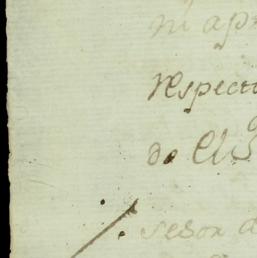 ni apr
respecto
de el S
sesor d